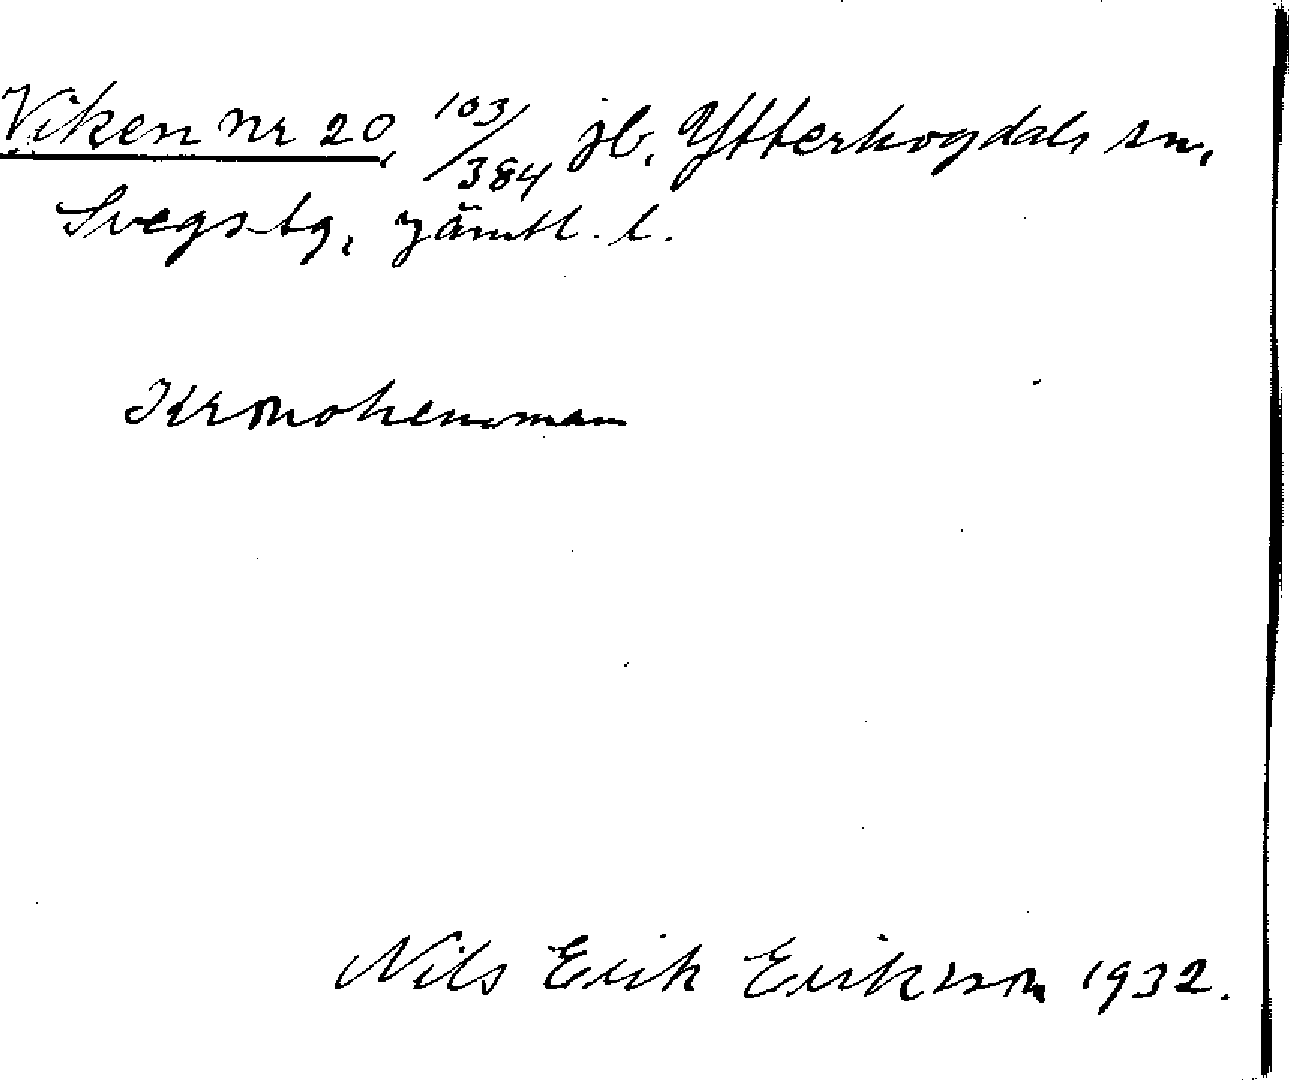 Viken nr 20, 103/384 jb. Ytterhogdals sn,
Svegs tg, Jämtl. l.
Kronohemman
Nils Erik Eriksson 1932.